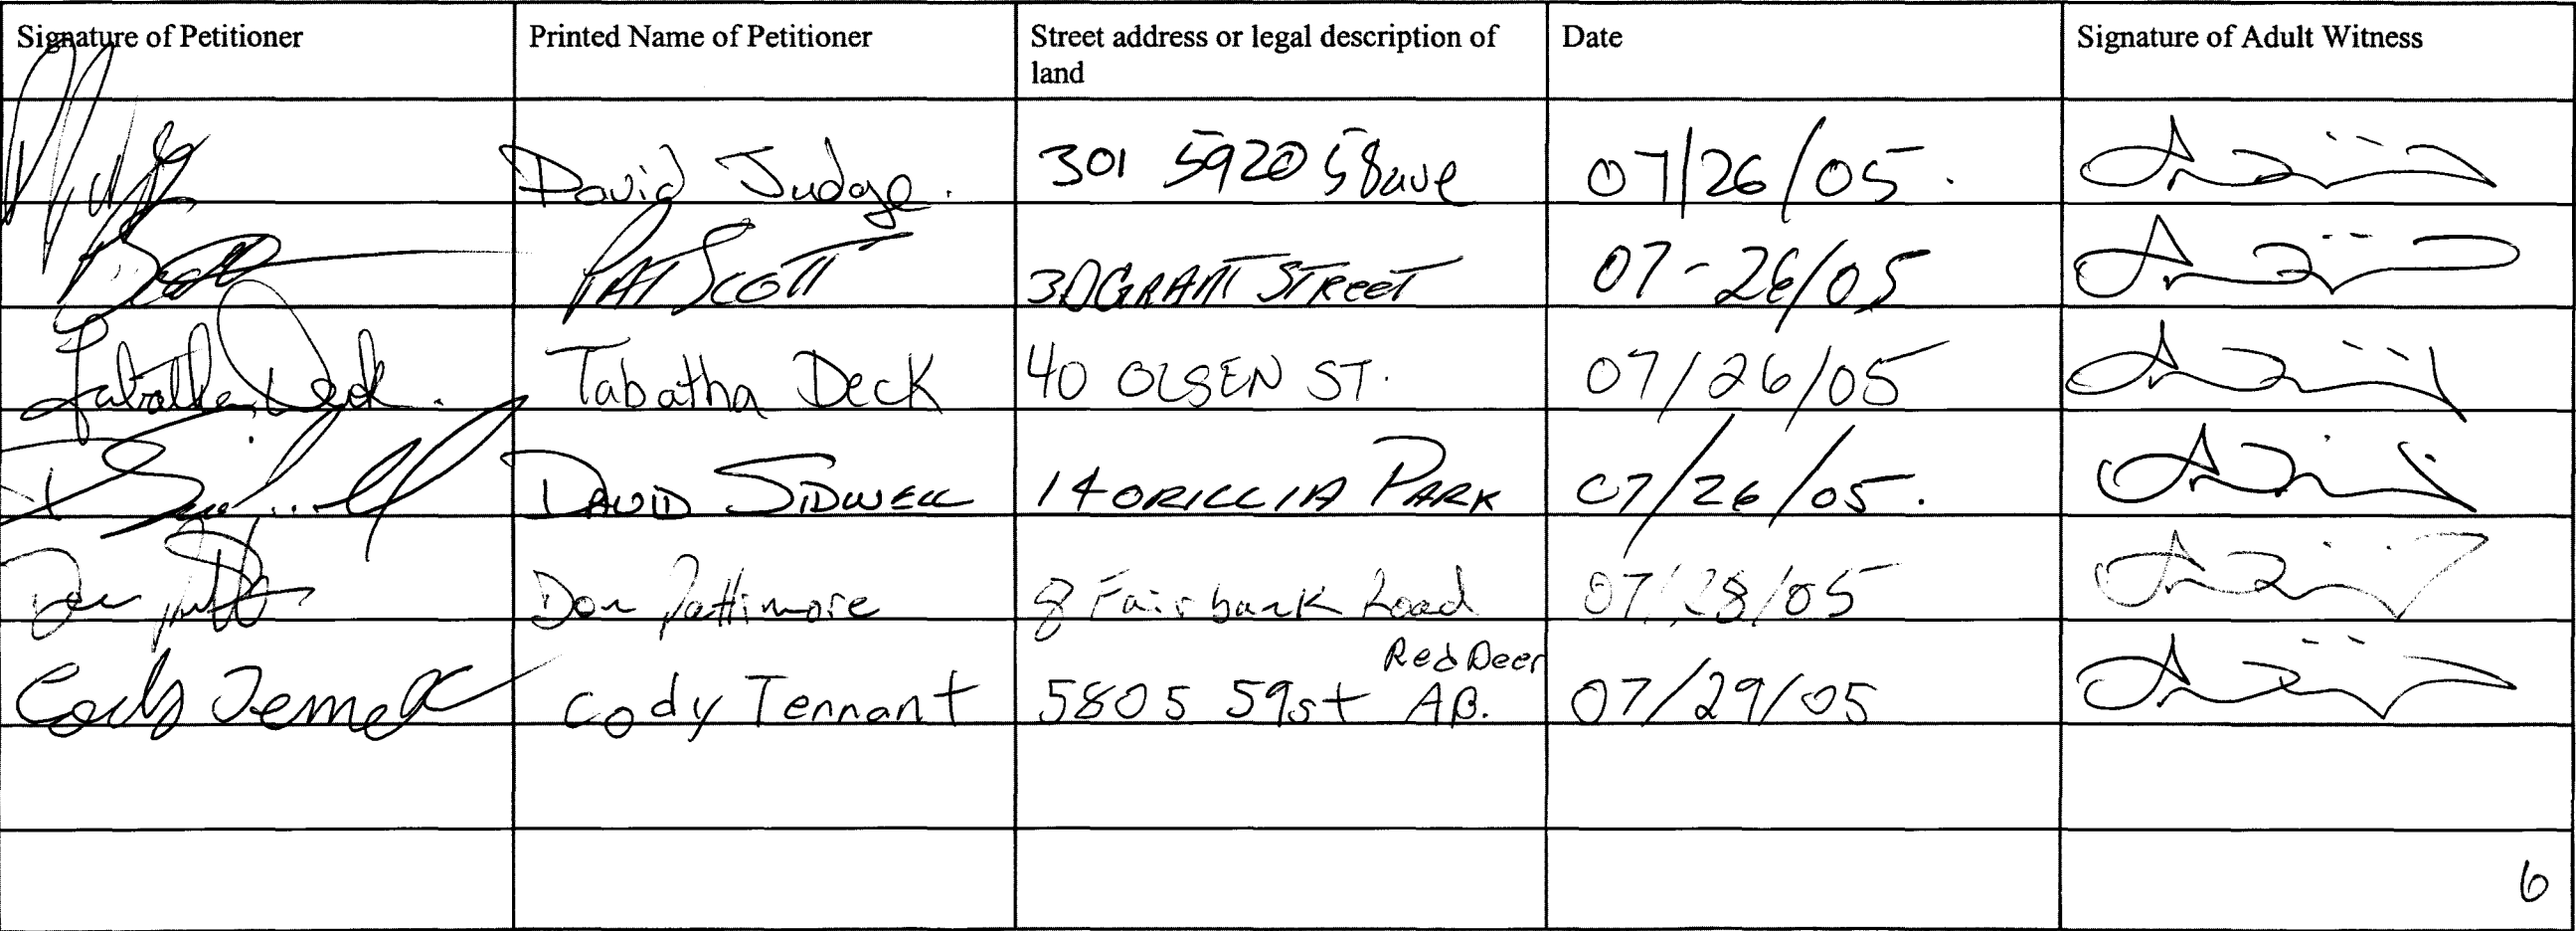 Signature of Petitioner Printed Name of Petitioner Street address or legal description of land Date Signature of Adult Witness
David Judge. 301 5920 58ave 07/26/05.
PAT SCOTT 30 GRANT STREET 07-26/05
Tabatha Deck. Tabatha Deck 40 OLSEN ST. 07/26/05
DAVID SIDWELL 14 ORILLIA PARK 07/26/05.
Don Pattimore 8 Fairbank Road 07/28/05
Red Deer
Cody Tennant Cody Tennant 5805 59st AB. 07/29/05
6